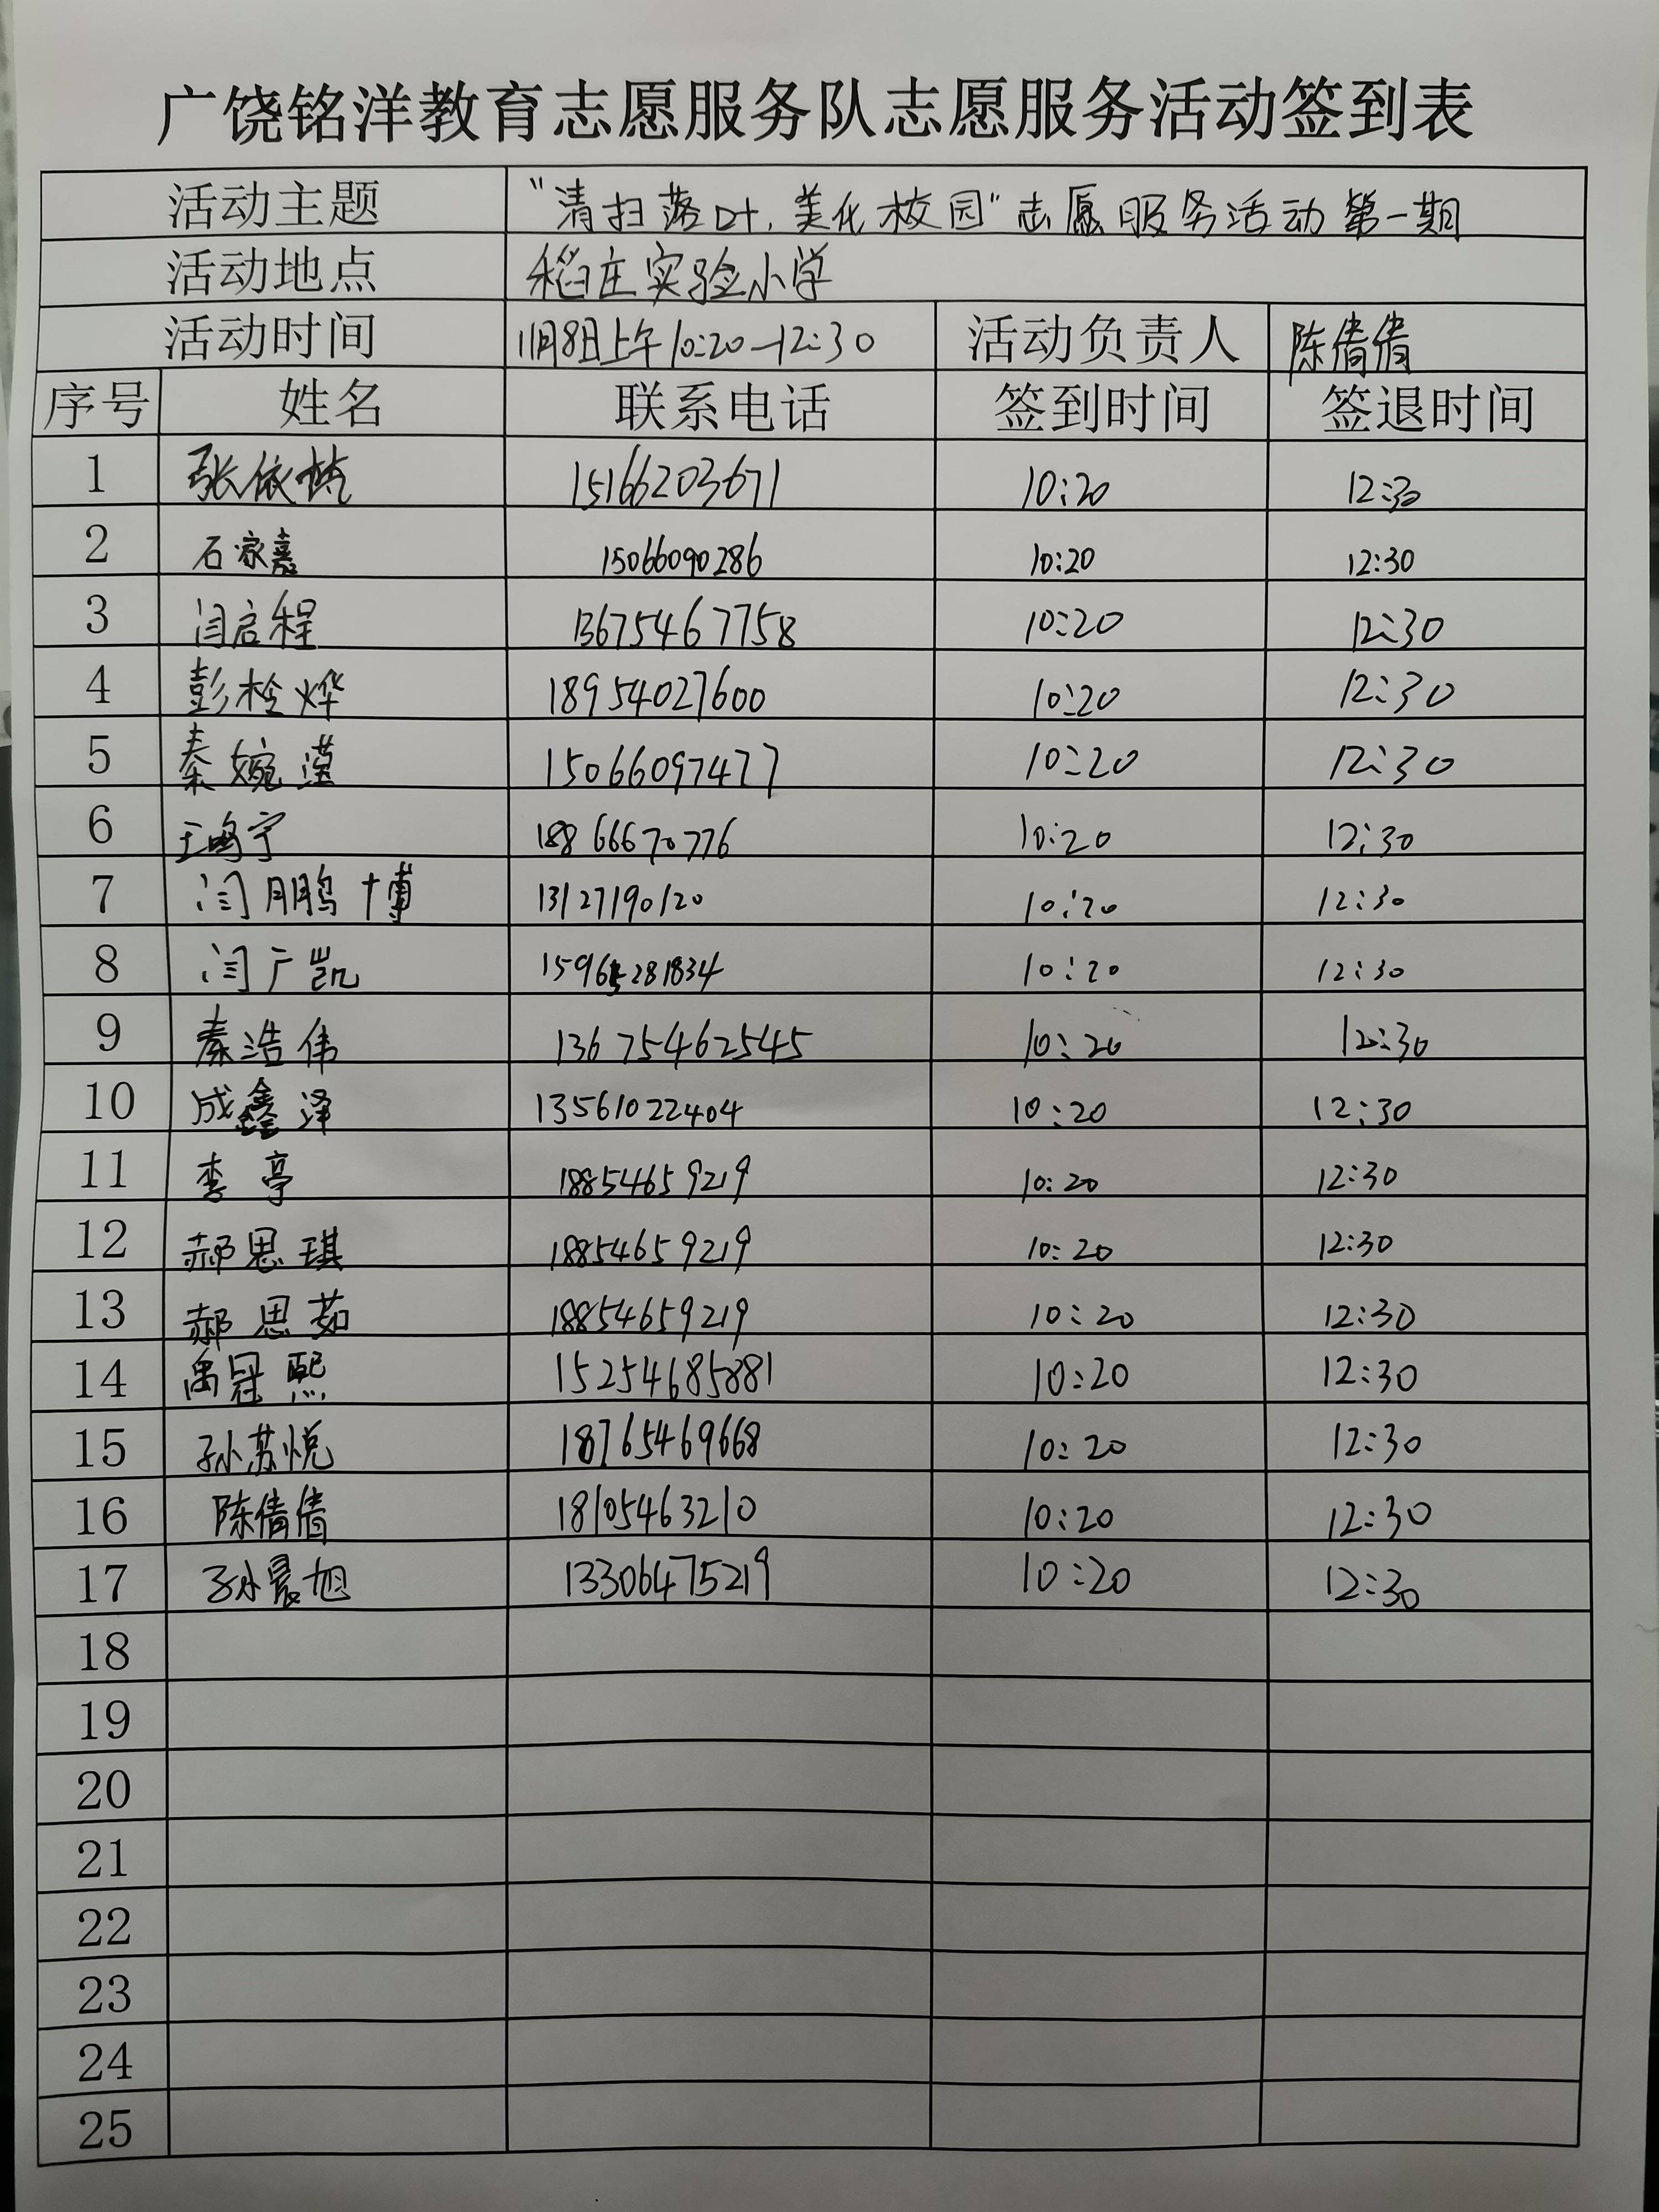 广饶铭洋教育志愿服务队志愿服务活动签到表
活动主题 "清扫落叶,美化校园"志愿服务活动第一期
活动地点 稻庄实验小学
活动时间 11月8日上午10:20—12:30 活动负责人 陈倩倩
序号 姓名 联系电话 签到时间 签退时间
1 张依 15166203671 10:20 12:30
2 石家嘉 15066090286 10:20 12:30
3 闫启程 13675467758 10:20 12:30
4 彭栓烨 18954027600 10:20 12:30
5 秦婉滢 15066097477 10:20 12:30
6 王鸣宇 18866670776 10:20 12:30
7 闫鹏博 13127190120 10:20 12:30
8 闫广凯 15965281834 10:20 12:30
9 秦浩伟 13675462545 10:20 12:30
10 成鑫泽 13561022404 10:20 12:30
11 李亭 18854659219 10:20 12:30
12 郝思琪 18854659219 10:20 12:30
13 郝思茹 18854659219 10:20 12:30
14 禹冠熙 15254685881 10:20 12:30
15 孙苏悦 18765469668 10:20 12:30
16 陈倩倩 18105463210 10:20 12:30
17 孙晨旭 13306475219 10:20 12:30
18
19
20
21
22
23
24
25